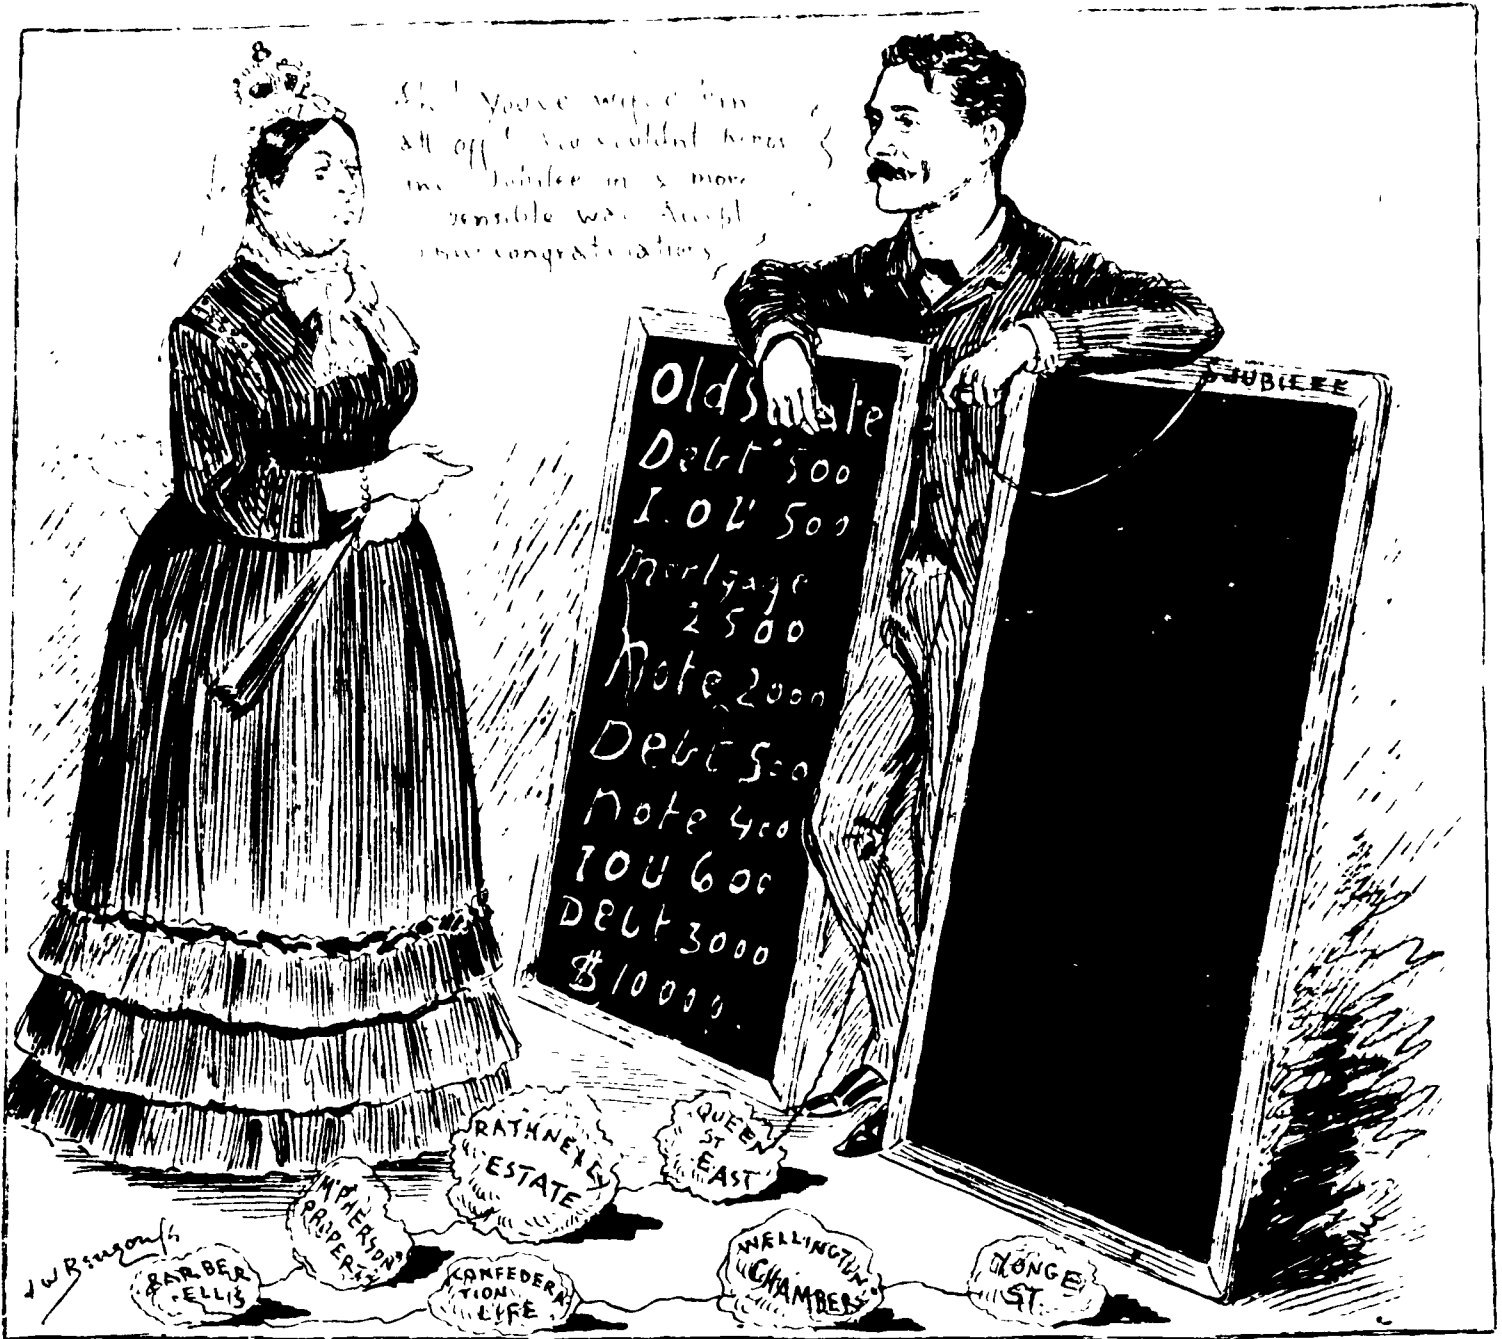 Ah! You've wiped 'em
all off! You couldnt honor
my Jubilee in a more
sensible way. Accept
congratulations
Old Slate
Debt 500
I.OU 500
Mortgage
2500
Note 2000
Debt 500
Note 400
IOU 600
Debt 3000
$10000.
JUBILEE
QUEEN
ST
EAST
ESTATE
McPHERSON
PROPERTY
BARBER
ELLIS
CONFEDERA
TION
LIFE
WELLINGTON
CHAMBERS
YONGE
ST.
J W Bengough